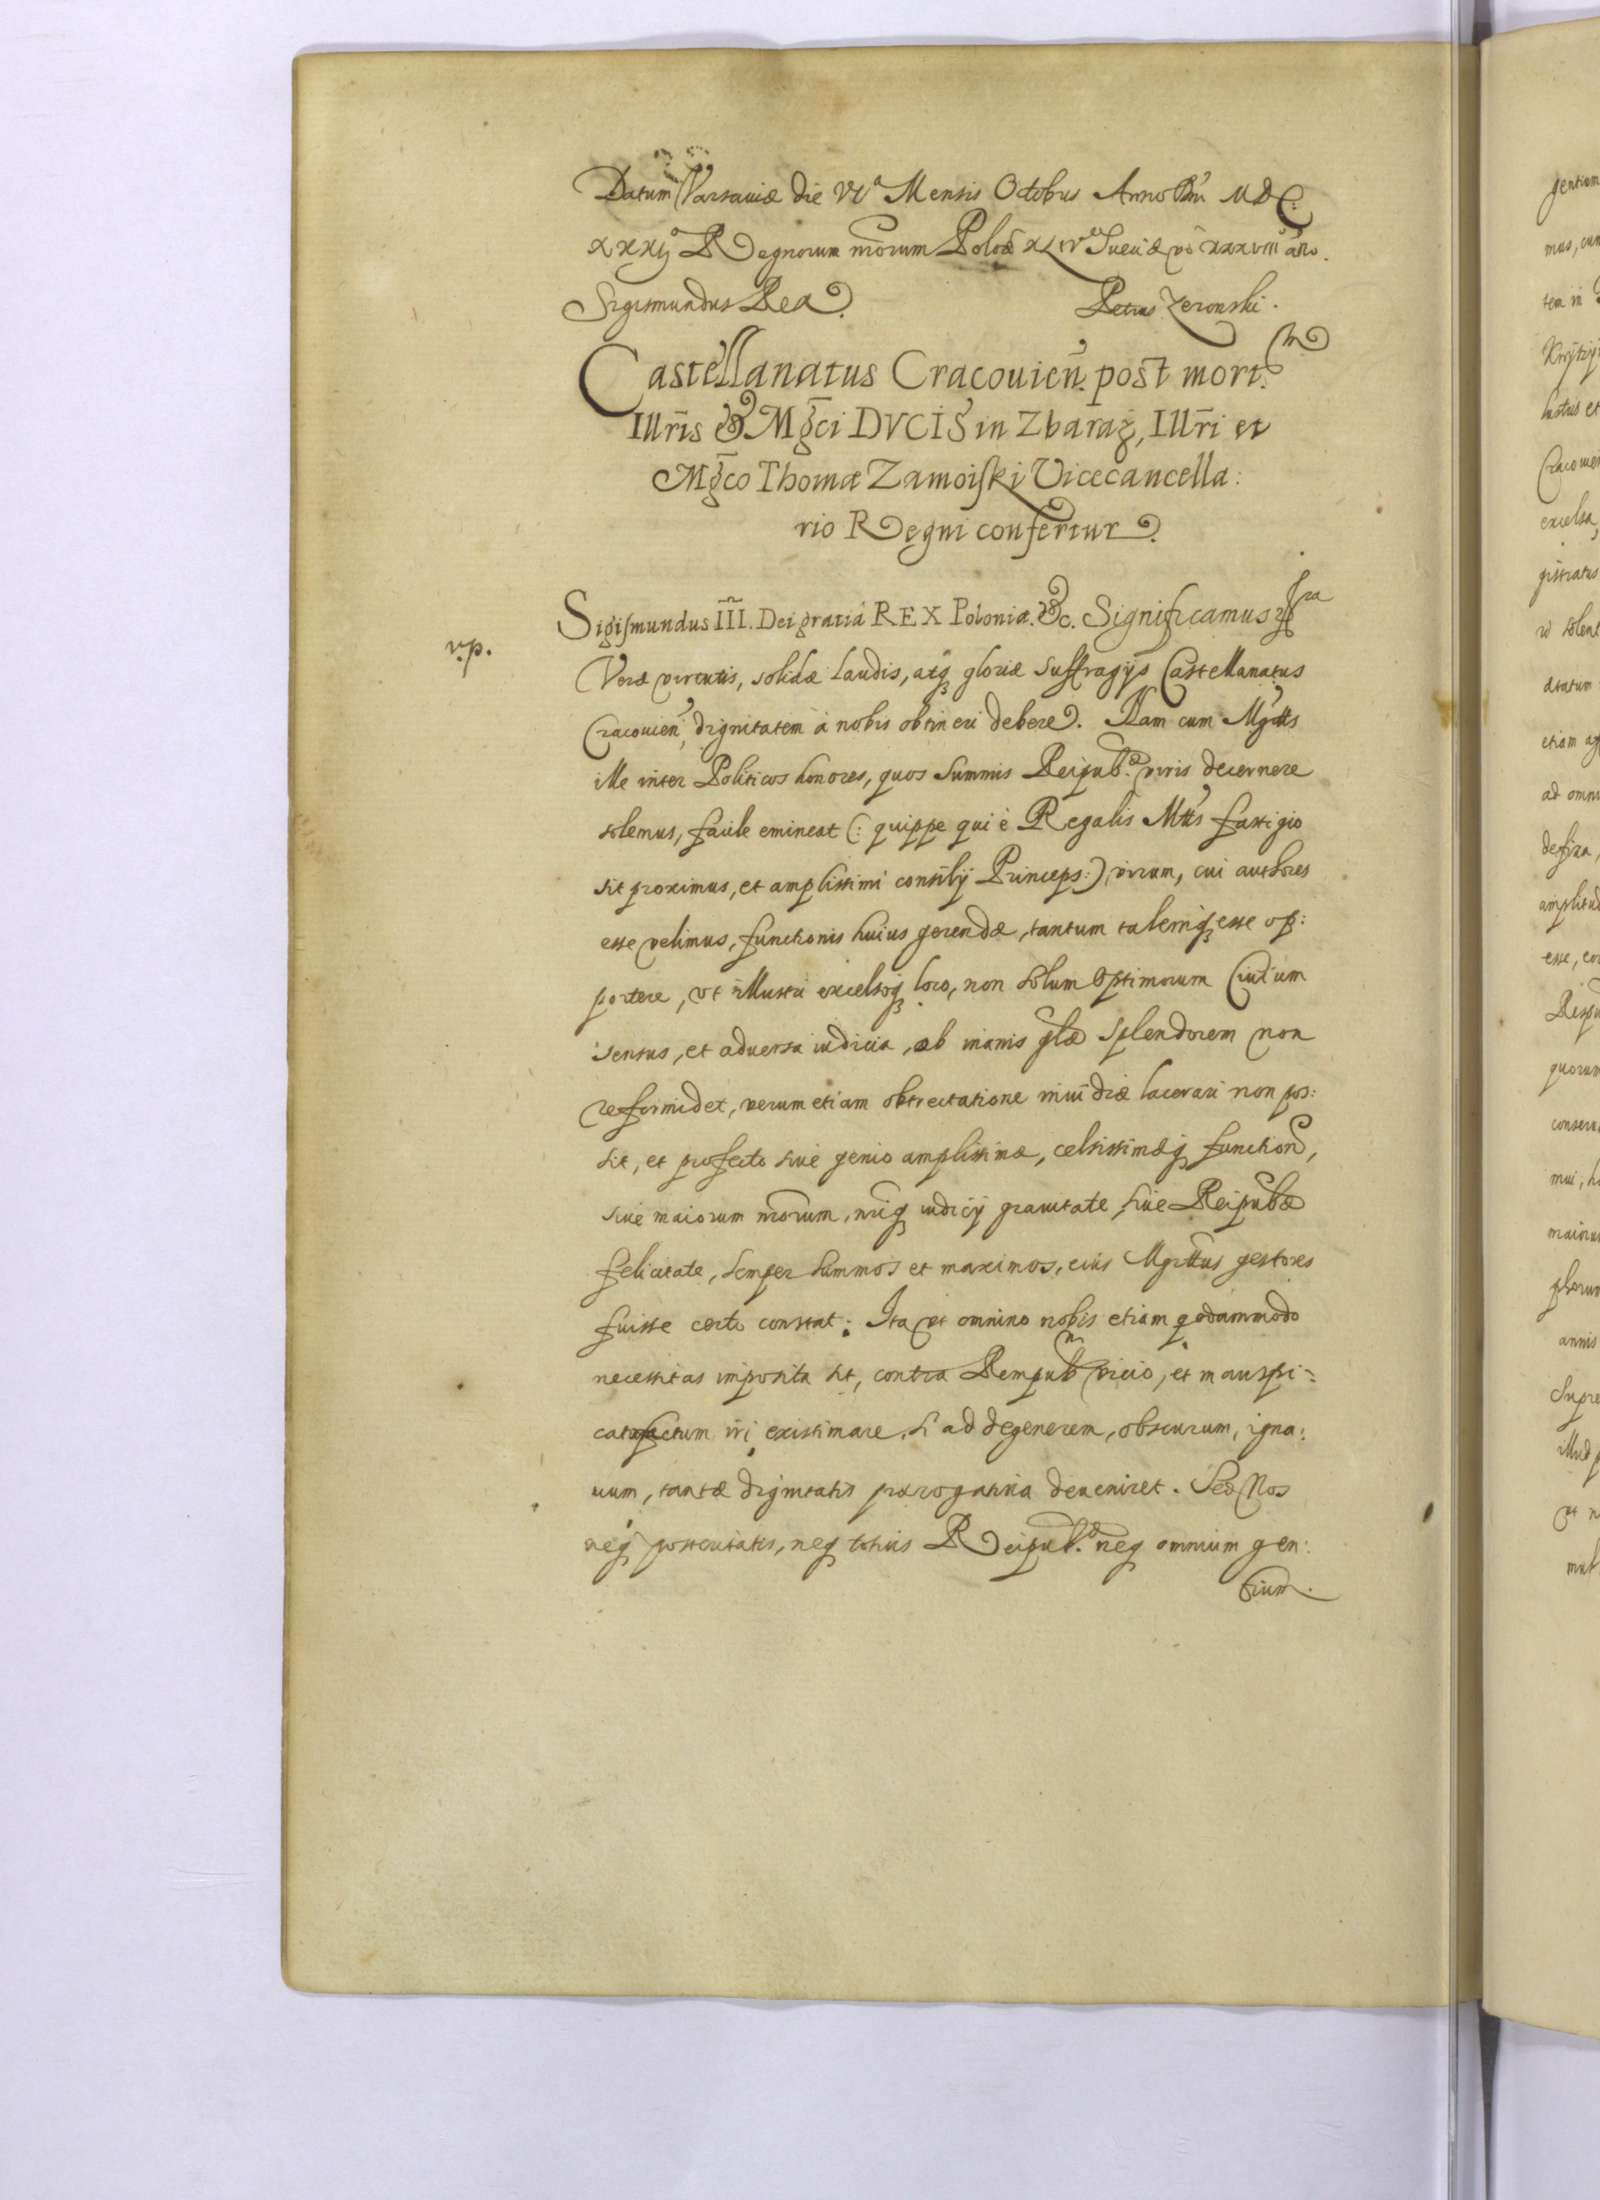 Datum Varsauiæ die VIᵃ Mensis Octobris Anno Dni M D C.
XXXIº Regnorum nrorum Poloæ XLIVº Sueciæ vō XXXVIII año.
Sigismundus Rex. Petrus Zeronski.
Castellanatus Cracouien. post mort.em
Illris & Mgci DVCIS in Zbaraż, Illri et
Mgco Thomæ Zamoiski Vicecancella:
rio Regni confertur.
Sigismundus III. Dei gratiá REX Poloniæ. &c. Significamus
v.p.
Veræ virtutis, solidæ laudis, atq gloriæ suffragijs Castellanatus
Cracouien, dignitatem à nobis obtineri debere. Nam cum Mgrtts
ille inter Politicos honores, quos summis Reipub.æ viris decernere
solemus, facile emineat (: quippe qui è Regalis Mttis fastigio
sit proximus, et amplissimi consilij Princeps:) virum, cui authores
esse velimus, functionis huius gerendæ, tantum talemq esse op:
portere, vt illustri excelsoq loco, non solum Optimorum Ciuium
sensus, et aduersa iudicia, ob inanis glæ splendorem non
reformidet, verum etiam obtrectatione inuidiæ lacerari non pos:
sit, et profecto siue genio amplissimæ, celsissimæq functionis,
siue maiorum nrorum, nriq iudicij grauitate, siue Reipubæ
felicitate, semper summos et maximos, eius Mgrttus gestores
fuisse certo constat: Ita vt omnino nobis etiam qodammodo
necessitas imposita sit, contra Rempubm vicio, et inauspi:
cato factum iri existimare, si ad degenerem, obscurum, igna:
uum, tantæ dignitatis prærogatiua deueniret. Sed Nos
neq posteritatis, neq totius Reipub.æ neq omnium gen:
tium.
gentium
mus, cum
tem in
hostis et
Cracouien
excelsa,
gistratus
etiam
ad omni
defixa,
amplitud
esse,
quorum
maioru
annis
Supre
illud